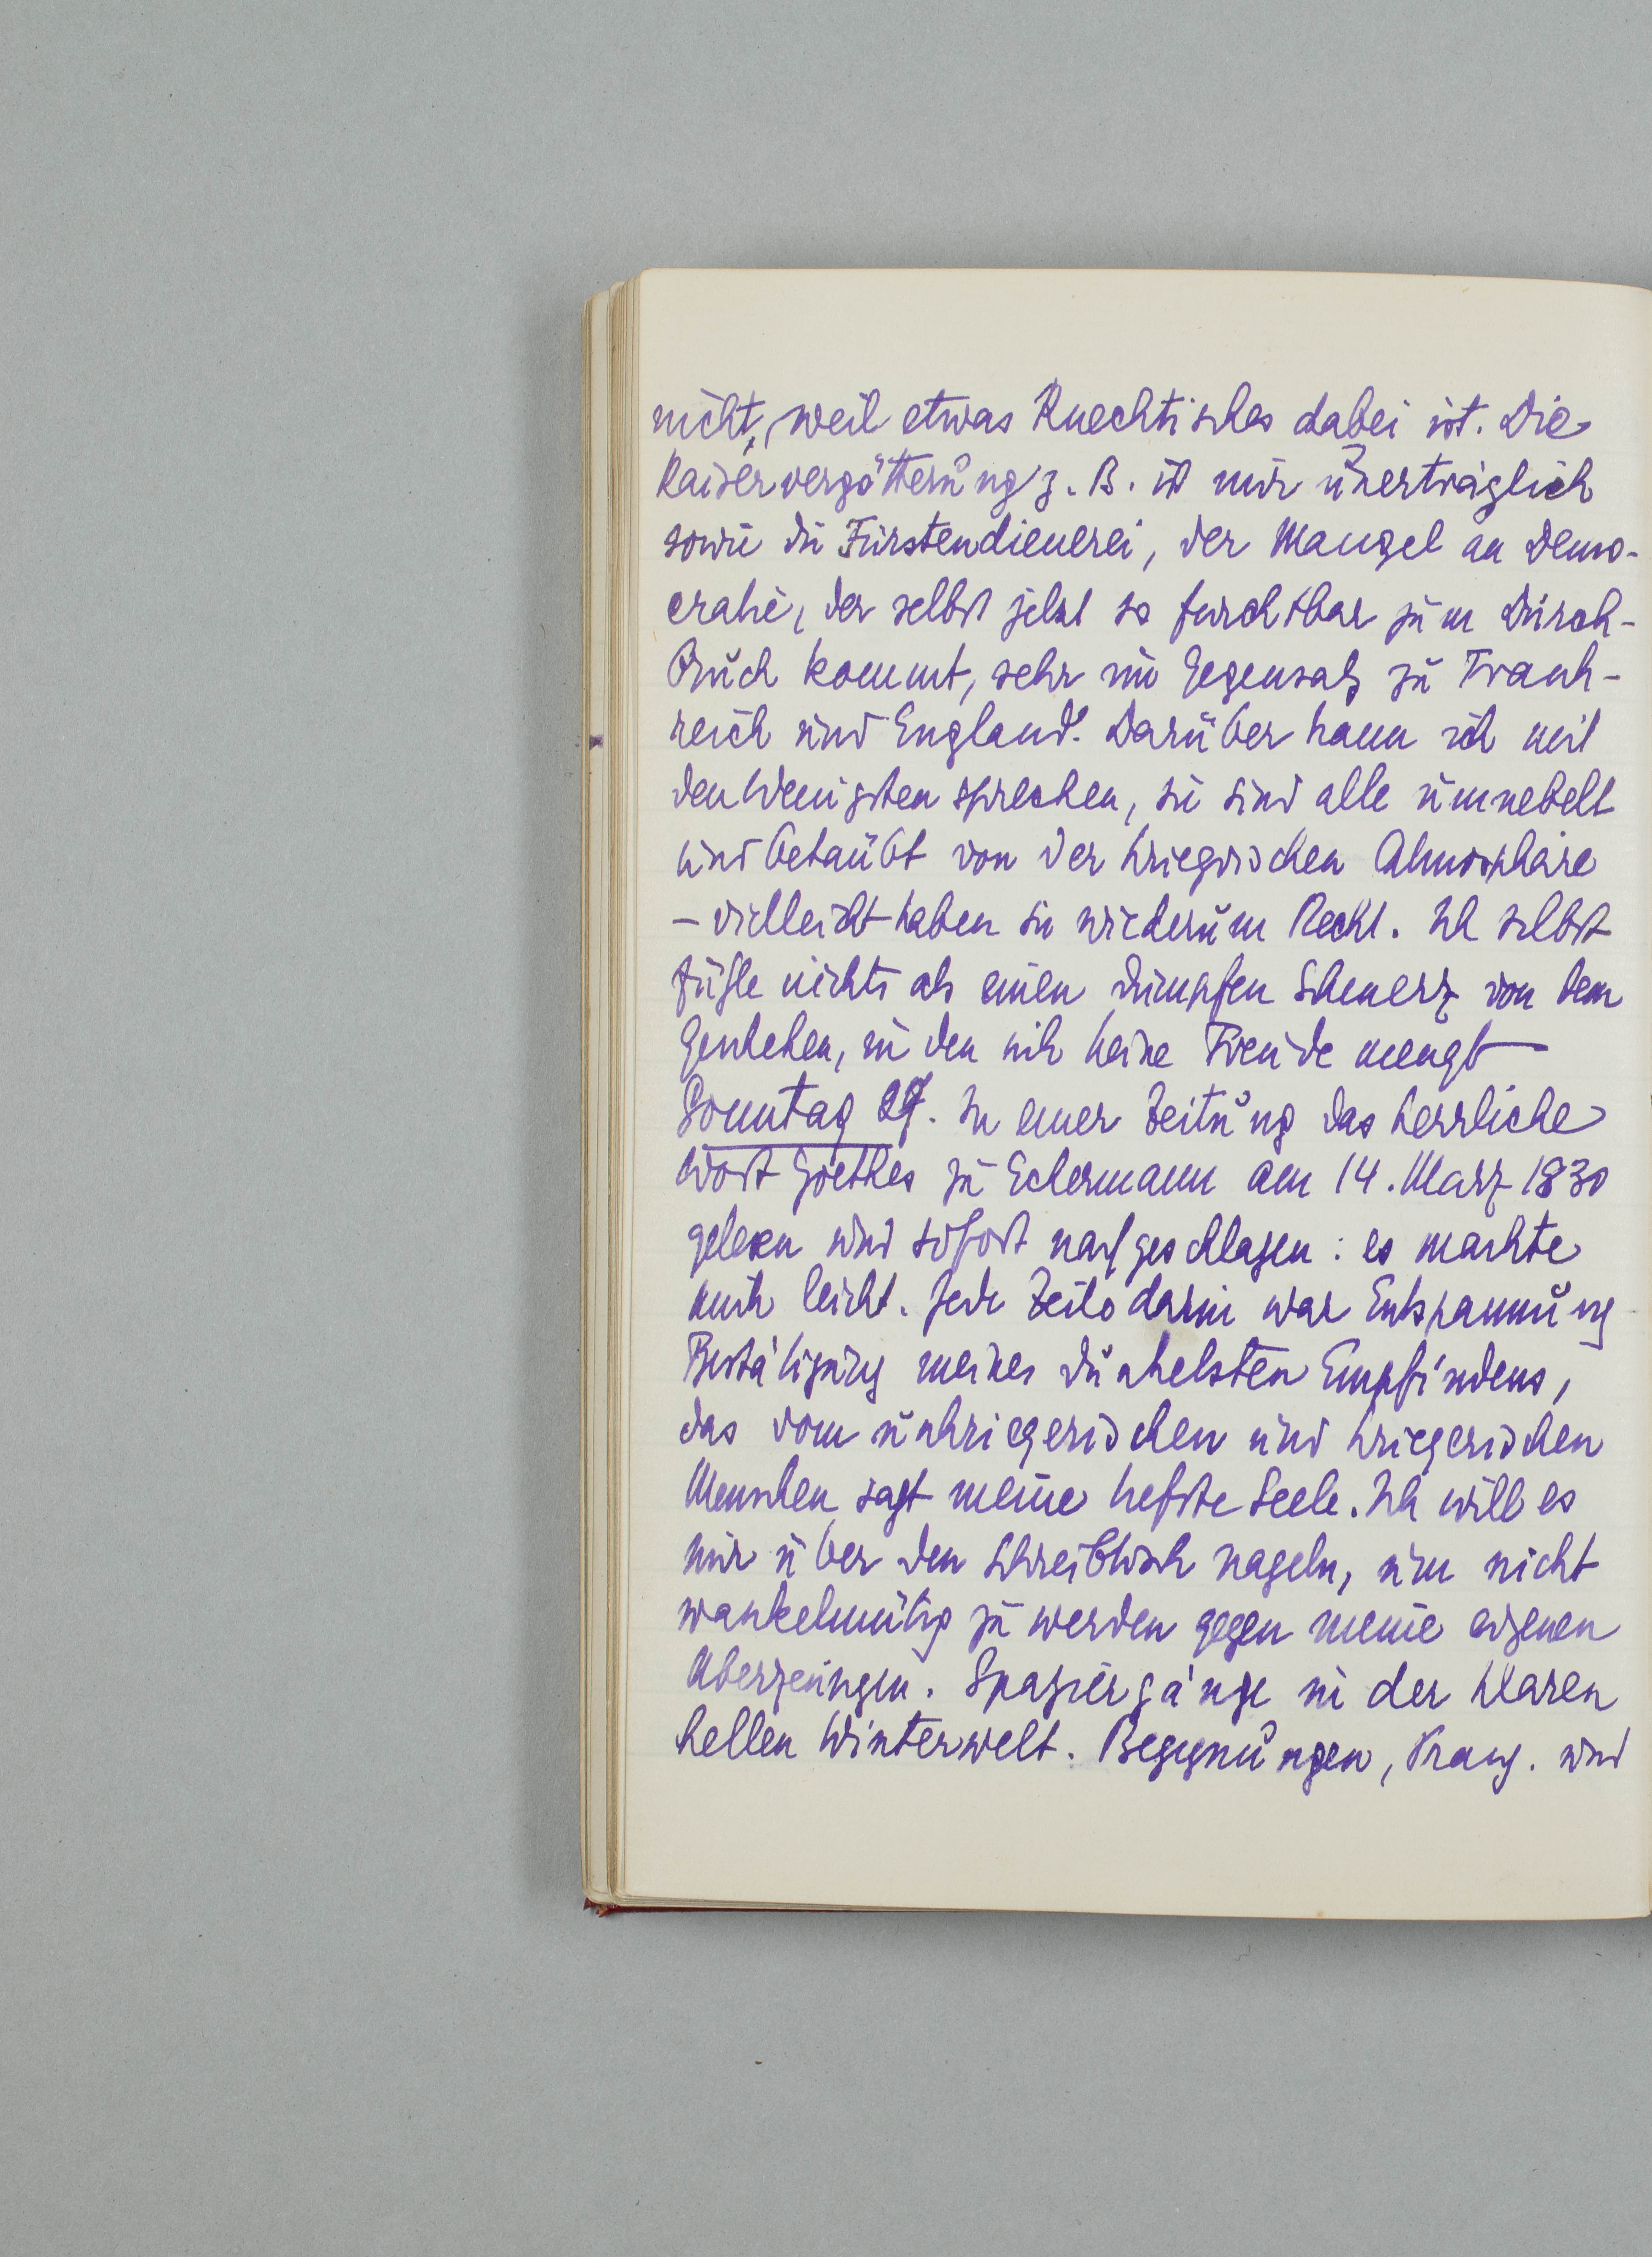 nicht, weil etwas Knechtisches dabei ist. Die
Kaiservergötterung z. B. ist mir unerträglich
sowie die Fürstendienerei, der Mangel an Demo-
cratie, der selbst jetzt so furchtbar zum Durch-
bruch kommt, sehr im Gegensatz zu Frank-
reich und England. Darüber kann ich mit
den Wenigsten sprechen, sie sind alle umnebelt
und betäubt von der kriegrischen Atmosphäre
– vielleicht haben sie wiederum Recht. Ich selbst
fühle nichts als einen dumpfen Schmerz von dem
Geschehen, in den sich keine Freude mengt –
Sonntag 27. In einer Zeitung das herrliche
Wort Goethes zu Eckermann am 14. März 1830
gelesen und sofort nachgeschlagen: es machte
mich leicht. Jede Zeile darin war Entspannung
Bestätigung meines dunkelsten Empfindens,
das vom unkriegerischen und kriegerischen
Menschen sagt meine tiefste Seele. Ich will es
mir über den Schreibtisch nageln, um nicht
wankelmütig zu werden gegen meine eigenen
Überzeugungen. Spaziergänge in der klaren
hellen Winterwelt. Begegnungen, und